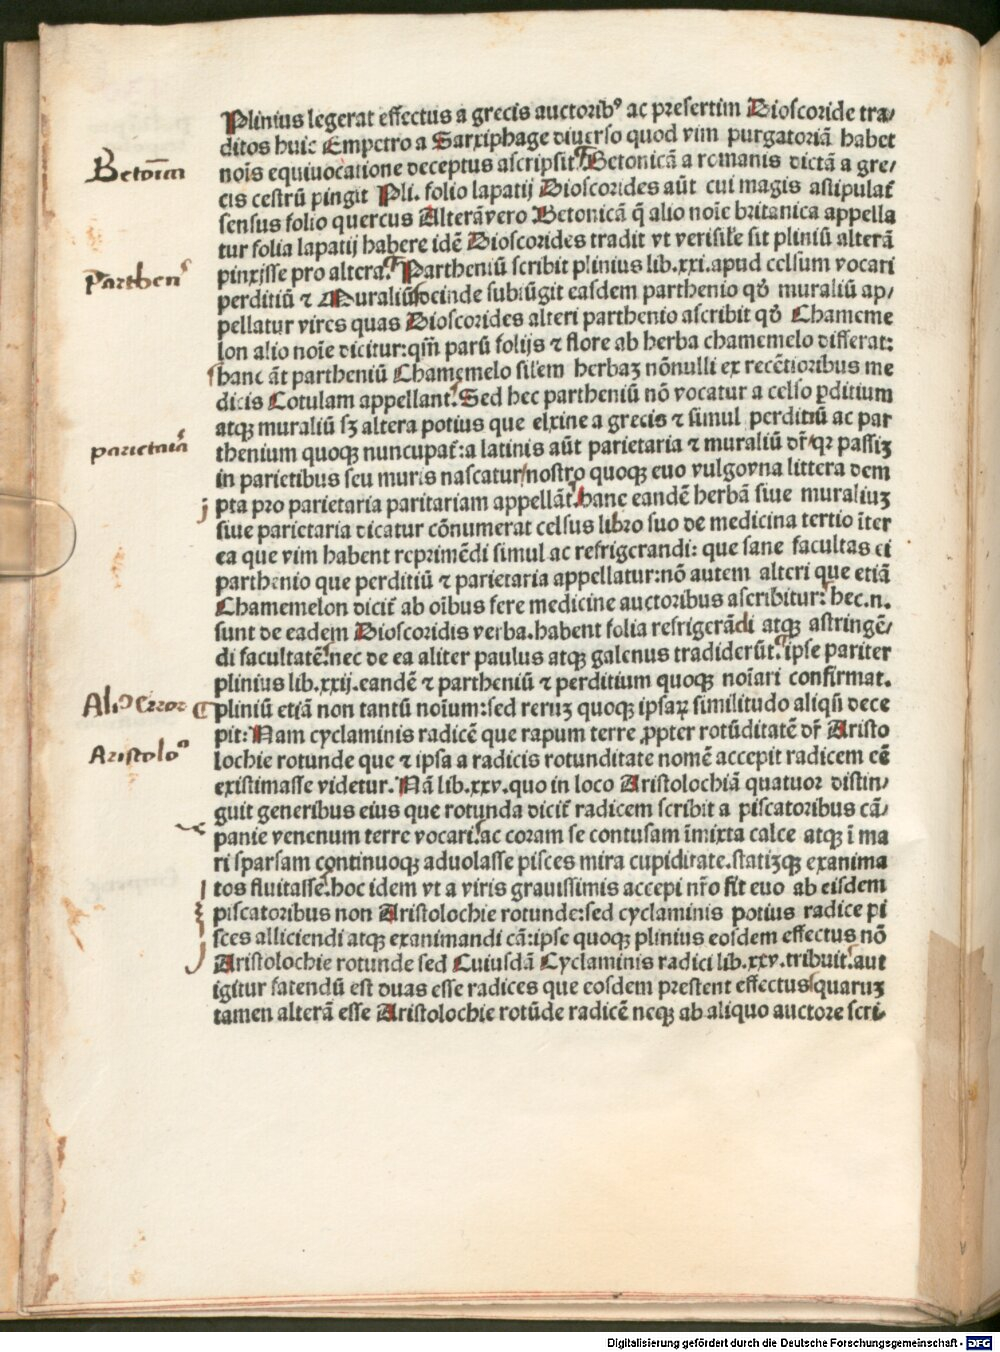 Plinius legerat effectus a grecis auctoribꝰ ac presertim Dioscoride tra/
ditos huic Empetro a Sarxiphage diuerso quod vim purgatoriā habet
nois equiuocatione deceptus ascripsit. Betonicā a romanis dictā a gre/
cis cestrū pingit Pli. folio lapatij Dioscorides aūt cui magis astipulat̄
sensus folio quercus Alterā vero Betonicā q̄ alio noīe britanica appella
tur folia lapatij habere idē Dioscorides tradit vt verisīle sit pliniū alterā
pinxisse pro altera. Partheniū scribit plinius lib.xxi.apud celsum vocari
perditiū ⁊ Muraliū deinde subiūgit easdem parthenio qđ muraliū ap/
pellatur vires quas Dioscorides alteri parthenio ascribit qđ Chameme
lon alio noīe dicitur:qm̄ parū folijs ⁊ flore ab herba chamemelo differat:
hanc āt partheniū Chamemelo silem herbaꝫ nōnulli ex recētioribus me
dicis Cotulam appellant. Sed hec partheniū nō vocatur a celso ꝑditium
atqꝫ muraliū sꝫ altera potius que elxine a grecis ⁊ simul perditiū ac par
thenium quoqꝫ nuncupat̄:a latinis aūt parietaria ⁊ muraliū dr̄ qꝛ passiꝫ
in parietibus seu muris nascatur/nostro quoqꝫ euo vulgo vna littera dem
pta pro parietaria paritariam appellāt. hanc eandē herbā siue muraliuꝫ
siue parietaria dicatur cōnumerat celsus libro suo de medicina tertio īter
ea que vim habent reprimēdi simul ac refrigerandi: que sane facultas ei
parthenio que perditiū ⁊ parietaria appellatur:nō autem alteri que etiā
Chamemelon dicit̄ ab oībus fere medicine auctoribus ascribitur: hec.n.
sunt de eadem Dioscoridis verba.habent folia refrigerādi atqꝫ astringē/
di facultatē.nec de ea aliter paulus atqꝫ galenus tradiderūt. ipse pariter
plinius lib.xxij.eandē ⁊ partheniū ⁊ perditium quoqꝫ noīari confirmat.
pliniū etiā non tantū noīum:sed reruꝫ quoqꝫ ipsaꝝ similitudo aliqn̄ dece
pit: Nam cyclaminis radicē que rapum terre ꝓpter rotūditatē dr̄ Aristo
lochie rotunde que ⁊ ipsa a radicis rotunditate nomē accepit radicem eē
existimasse videtur. Nā lib.xxv.quo in loco Aristolochiā quatuor distin/
guit generibus eius que rotunda dicit̄ radicem scribit a piscatoribus cā/
panie venenum terre vocari. ac coram se contusam īmixta calce atqꝫ ī ma
ri sparsam continuoqꝫ aduolasse pisces mira cupiditate.statiꝫqꝫ exanima
tos fluitasse. hoc idem vt a viris grauissimis accepi nr̄o fit euo ab eisdem
piscatoribus non Aristolochie rotunde:sed cyclaminis potius radice pi
sces alliciendi atqꝫ exanimandi cā:ipse quoqꝫ plinius eosdem effectus nō
Aristolochie rotunde sed Cuiusdā Cyclaminis radici lib.xxv.tribuit. aut
igitur fatendū est duas esse radices que eosdem prestent effectus quaruꝫ
tamen alterā esse Aristolochie rotūde radicē neqꝫ ab aliquo auctore scri-
Parthen⁹
parietaīa
Aliꝰ Error
Aristoloᵃ
Digitalisierung gefördert durch die Deutsche Forschungsgemeinschaft - DFG